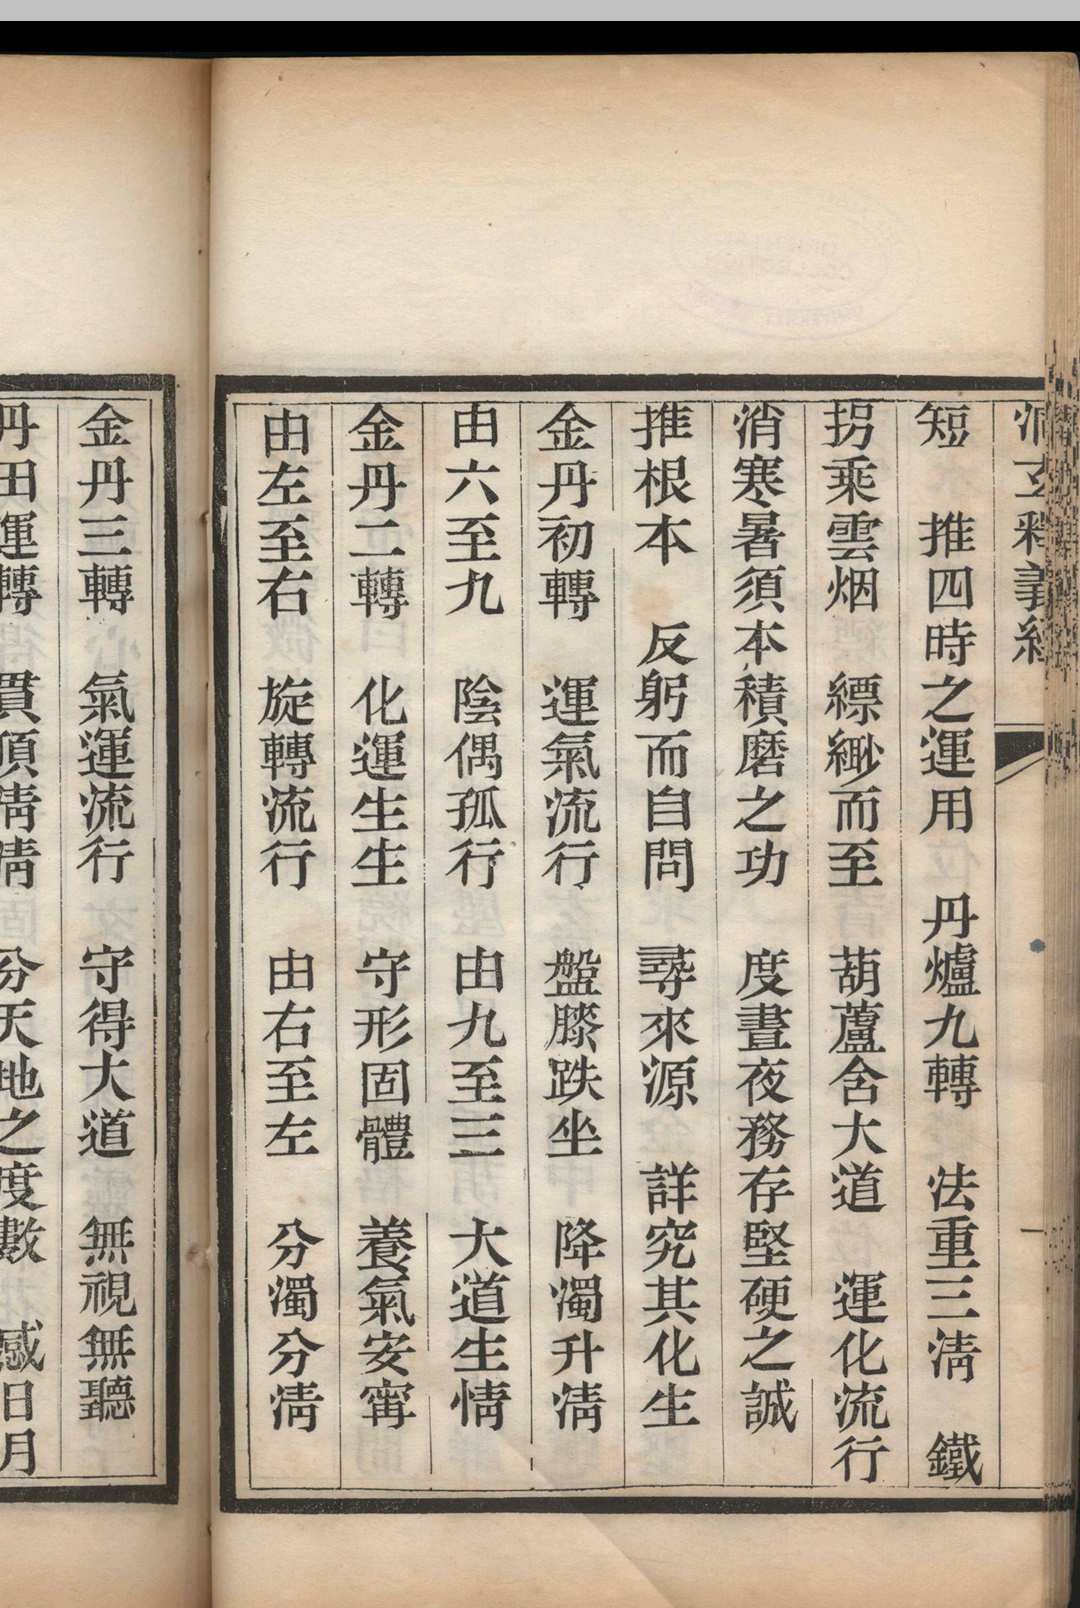 洞玄釋義經
一
短　推四時之運用　丹爐九轉　法重三淸　鐵
拐乘雲烟　縹緲而至　葫蘆含大道　運化流行
消寒暑須本積磨之功　度晝夜務存堅硬之誠
推根本　反躬而自問　尋來源　詳究其化生
金丹初轉　運氣流行　盤膝跌坐　降濁升淸
由六至九　陰偶孤行　由九至三　大道生情
金丹二轉　化運生生　守形固體　養氣安甯
由左至右　旋轉流行　由右至左　分濁分淸
金丹三轉　氣運流行　守得大道　無視無聽
丹田運轉　貫頂淸淸　分天地之度數　感日月